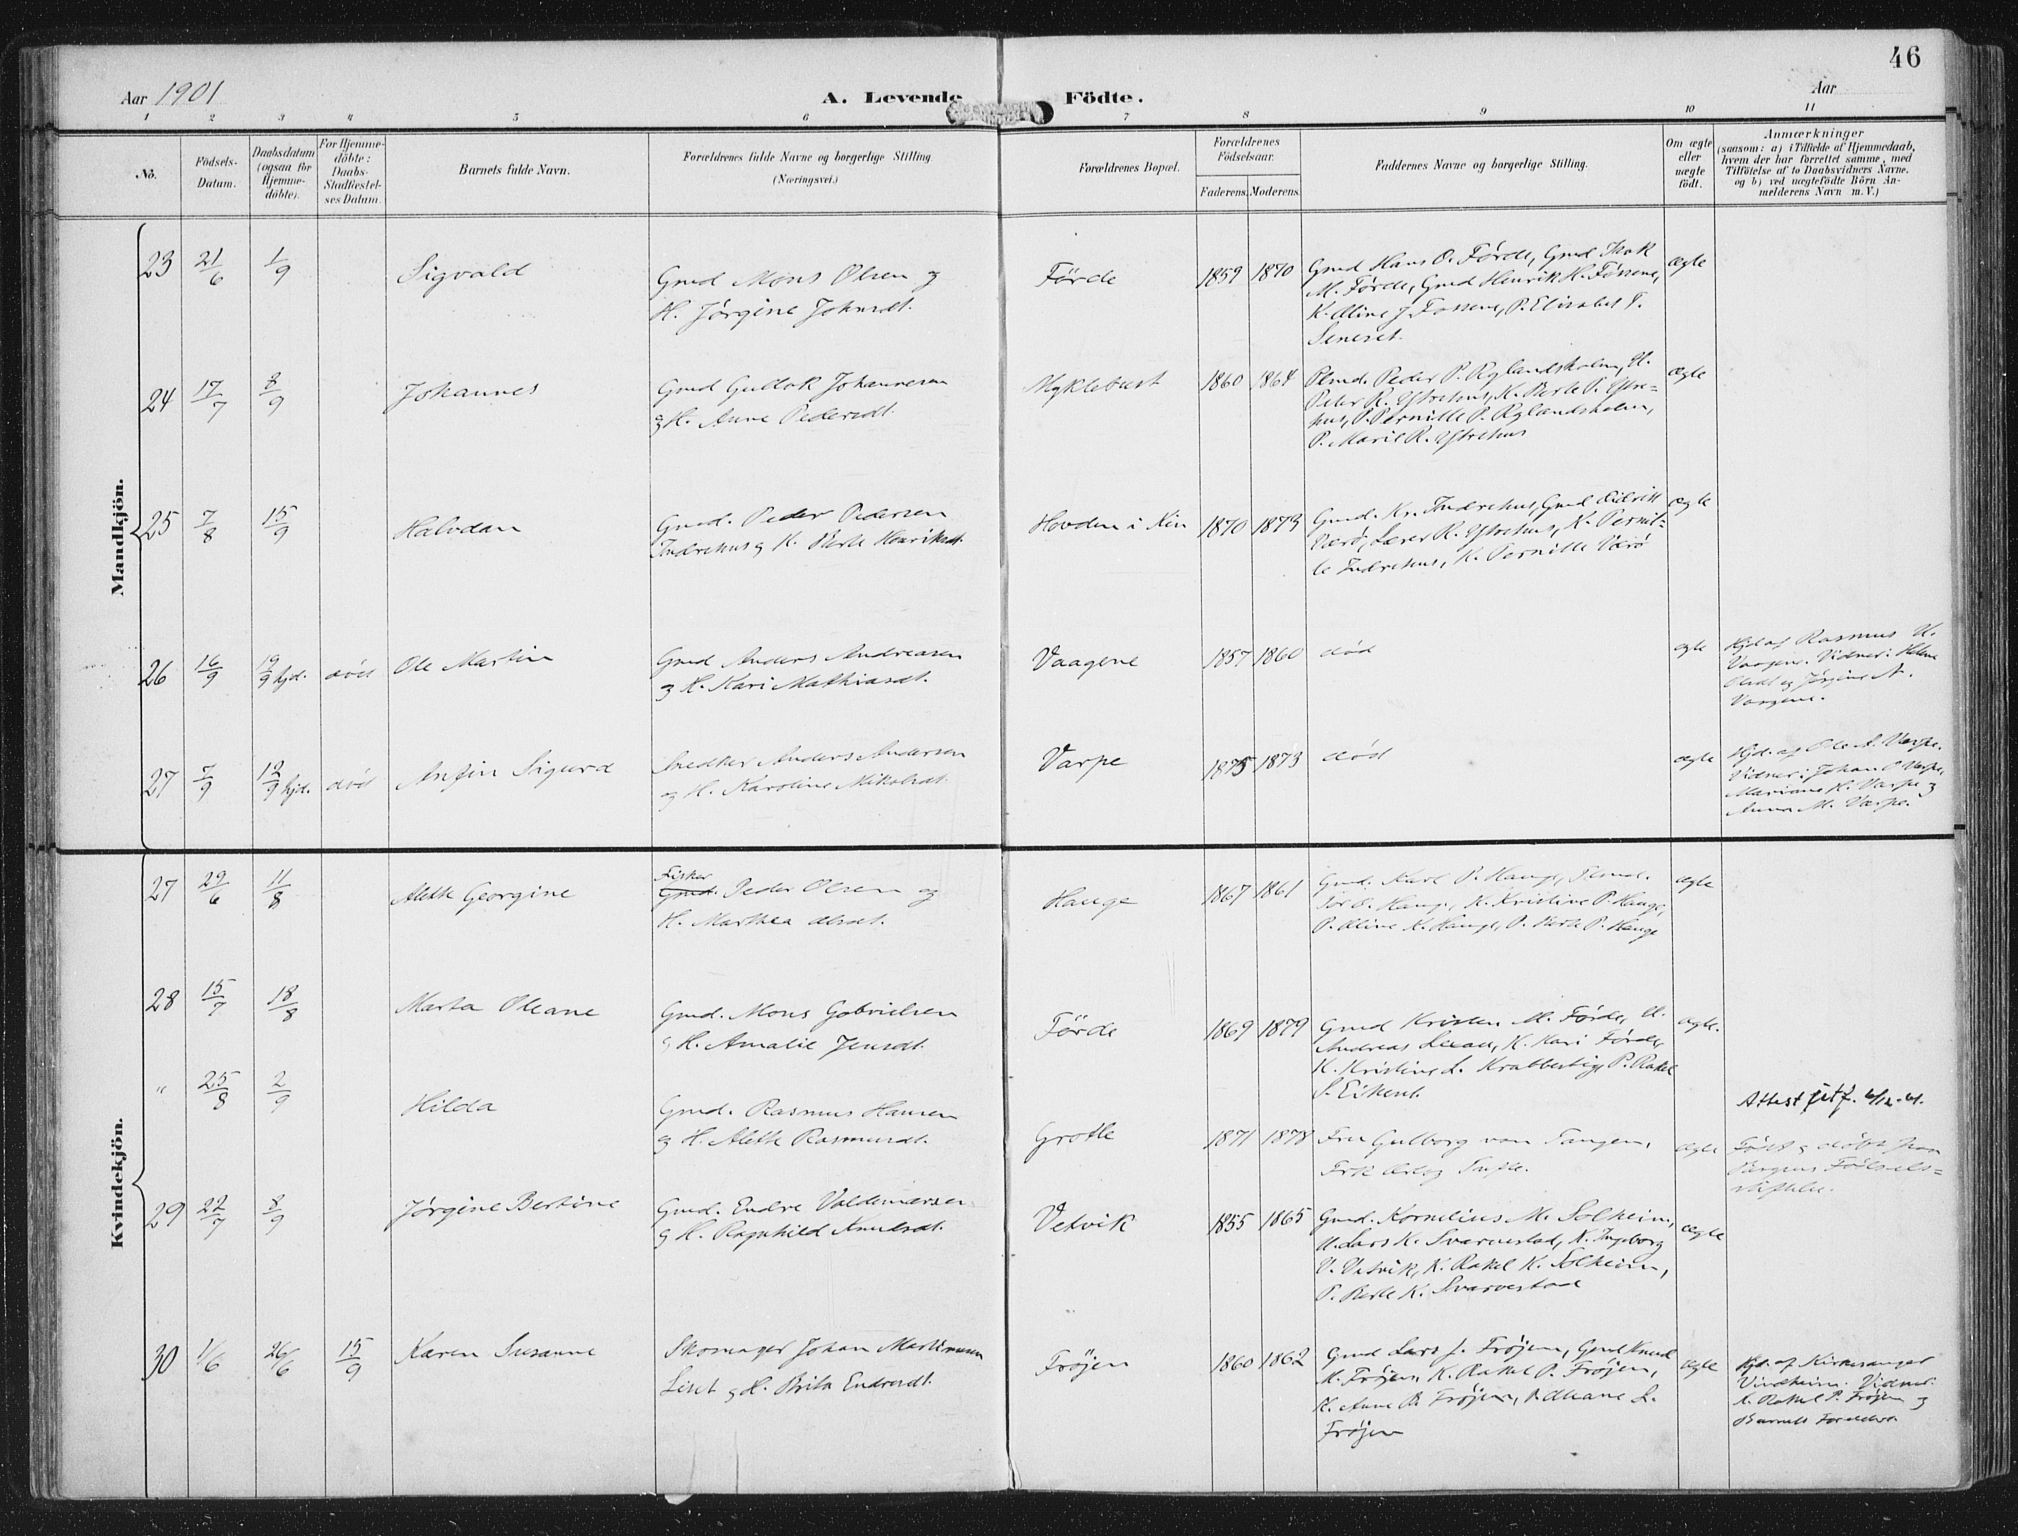 46
Aar 1901
A. Levende Födte.
Aar
1 2 3 4 5 6 7 8 9 10 11
No.
Födsels-Datum.
Daabsdatum (ogsaa for Hjemme-döbte).
For Hjemme-döbte: Daabs-Stadfæstel-ses Datum.
Barnets fulde Navn.
Forældrenes fulde Navne og borgerlige Stilling
(Næringsvei.)
Forældrenes Bopæl.
Forældrenes Födselsaar.
Faderens. Moderens.
Faddernes Navne og borgerlige Stilling.
Om ægte eller uægte födt.
Anmærkninger
(saasom: a) i Tilfælde af Hjemmedaab,
hvem der har forrettet samme, med
Tilföielse af to Daabsvidners Navne.
og b) ved uægtefödte Börn An-
melderens Navn m. V.)
Mandkjön.
23 21/6 1/9 Sigvald
Gmd Mons Olsen og
H. Jørgine Johnsdt.
Førde 1859 1870
Gmd Hans O. Førde, Gmd Isak
M. Førde, Gmd Henrik H. Fossene,
K. Oline J Fossene, P. Elisabet P.
Seneset.
ægte
24 17/7 8/9 Johannes
Gmd Gullak Johannesen
og H. Anne Pedersdt.
Myklebust 1860 1864
Plmd. Peder P. Rylandsholm, U.
Peter R. Ystrehus, K. Berte P. Ystre-
hus, P. Pernille P. Rylandsholm,
P. Marie R. Ystrehus
ægte
25 7/8 15/9 Halvdan
Gmd. Peder Pedersen
Indrehus og H. Berte Henriksdt.
Hovden i Kin 1870 1873
Gmd. Kr. Indrehus, Gmd Didrik
Værø, Lærer R. Ystrehus, K. Pernil-
le Indrehus, K. Pernille Værø
ægte
26 16/9 19/9 hjd. død Ole Martin
Gmd Anders Andreasen
og H. Kari Mathiasdt.
Vaagene 1857 1860 død ægte
Hjd af Rasmus U.
Vaagene. Vidner: Helene
Olsdt og Jørgine A.
Vaagene.
27 7/9 12/9 hjd. død Anfin Sigurd
Snedker Anders Andersen
og H. Karoline Mikalsdt.
Varpe 1875 1873 død ægte
Hjd. af Ole A. Varpe.
Vidner: Johan O Varpe,
Mariane K. Varpe og
Anna M. Varpe.
Kvindekjön.
27 29/6 11/8 Alette Georgine
Fisker
Gmd. Peder Olsen og
H. Marthea Olsdt.
Hauge 1867 1861
Gmd. Karl P. Hauge, Plmd.
Per O. Hauge, K. Kristine P. Hauge,
P. Oline K. Hauge, P. Berte P. Hauge
ægte
28 15/7 18/8 Marta Oleane
Gmd. Mons Gabrielsen
og H. Amalie Jensdt.
Førde 1869 1879
Gmd Kristen M. Førde, U.
Andreas K. Kari Førde,
K. Kristine L. Krabbestig, P. Rakel
S. Eikent.
ægte.
" 25/8 2/9 Hilda
Gmd. Rasmus Hansen
og H. Alette Rasmusdt.
Grotle 1871 1878
Fru Gulborg von Tangen,
ægte
Attest
Født og døbt paa
Bergens Fødsels-
stiftelse.
29 22/7 8/9 Jørgine Bertine
Gmd. Endre Valdemarsen
og H. Ragnhild Knudsdt.
Vetvik 1855 1865
Gmd. Kornelius M. Solheim,
U. Lars K. Svarvestad, K. Ingeborg
V. Vetvik, K. Rakel K. Solheim,
P. Berte K. Svarvestad
ægte
30 1/6 26/6 15/9 Karen Susanne
Skomager Johan Martinussen
Liset og H. Brita Endresdt.
Frøjen 1860 1862
Gmd Lars J. Frøjen, Gmd Knud
K. Frøjen, K. Rakel P. Frøjen,
K. Anne B. Frøjen, P. Oleane L.
Frøjen
ægte
Hjd. af Kirkesanger
Vindheim. Vidner:
K. Rakel P. Frøjen og
Barnets Forældre.